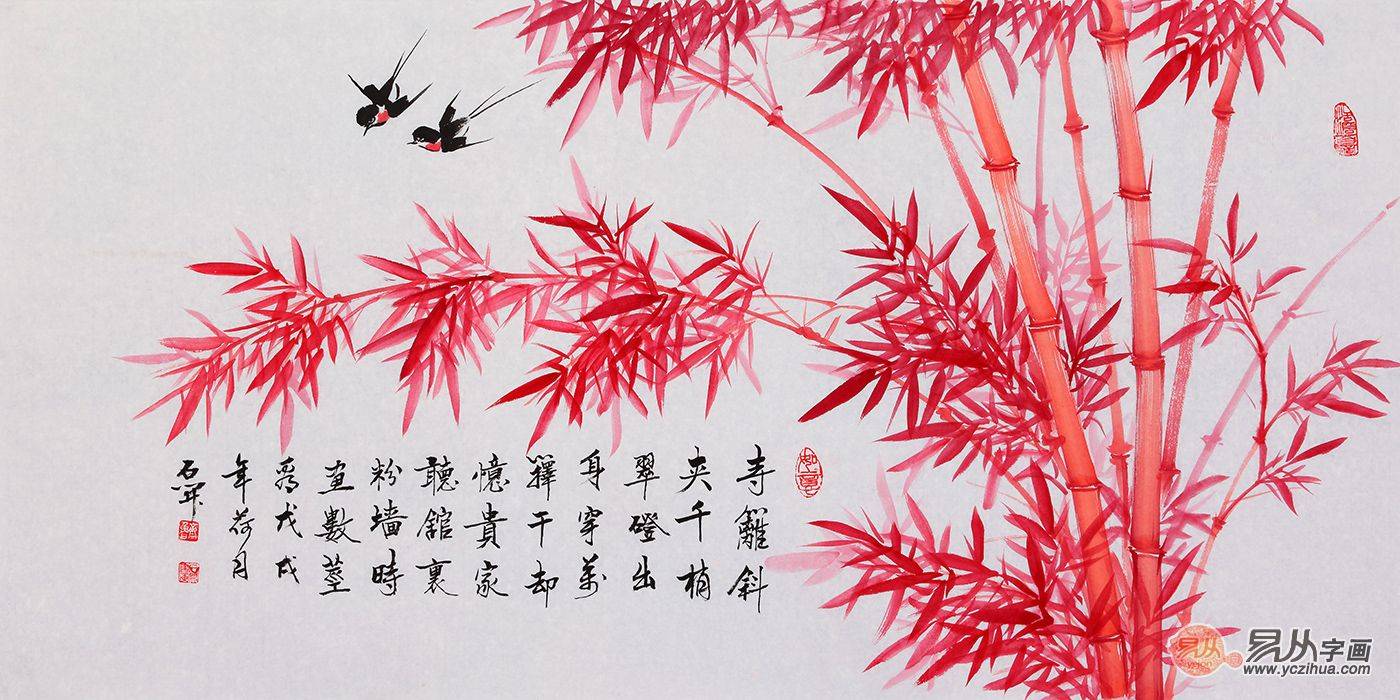 寺籬斜
夹千梢
翠磴出
身穿萬
籜干却
憶貴家
聽舘裏
粉墙時
画數莖
戊戌
年荷月
如意
易从字画
www.yczihua.com